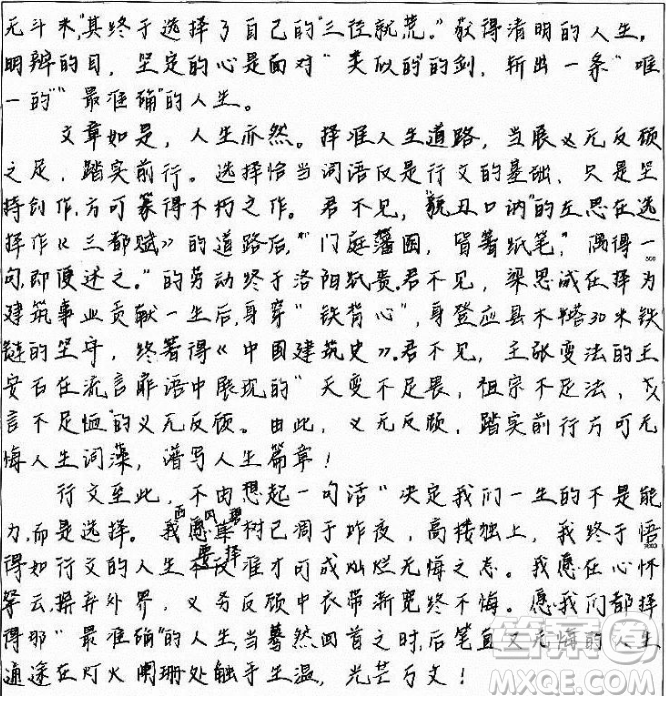 无斗米,"其终于选择了自己的"三径就荒。"获得清明的人生。
明辨的目，坚定的心是面对"类似的"的剑，斩出一条"唯
一的""最准确"的人生。
文章如是，人生亦然。择准人生道路，当展义无反顾
之足，踏实前行。选择恰当词语仅是行文的基础，只是坚
持创作,方可纂得不朽之作。君不见，"貌丑口讷"的左思在选
择作《三都赋》的道路后,"门庭藩囿，皆著纸笔，偶得一
500
句,即便述之。"的劳动终于洛阳纸贵.君不见，梁思成在择为
建筑事业贡献一生后,身穿"铁背心"，身登应县木塔30米铁
链的坚守，终著得《中国建筑史》.君不见，主张变法的王
安石在流言蜚语中展现的"天变不足畏，祖宗不足法，人
言不足恤"的义无反顾。由此，义无反顾，踏实前行方可无
悔人生词藻，谱写人生篇章！
行文至此，不由想起一句话"决定我们一生的不是能
力,而是选择。我愿 西风碧树已凋于昨夜，高楼独上，我终于悟
得如行文的人生 要择准才可成灿烂无悔之态。我愿在心怀
琴云,摒弃外界，义务反顾中衣带渐宽终不悔。愿我们都择
得那"最准确"的人生,当蓦然回首之时,后笔直又无悔的人生
通途在灯火阑珊处触手生温，光芒万丈！
答案圈
MXQE.COM